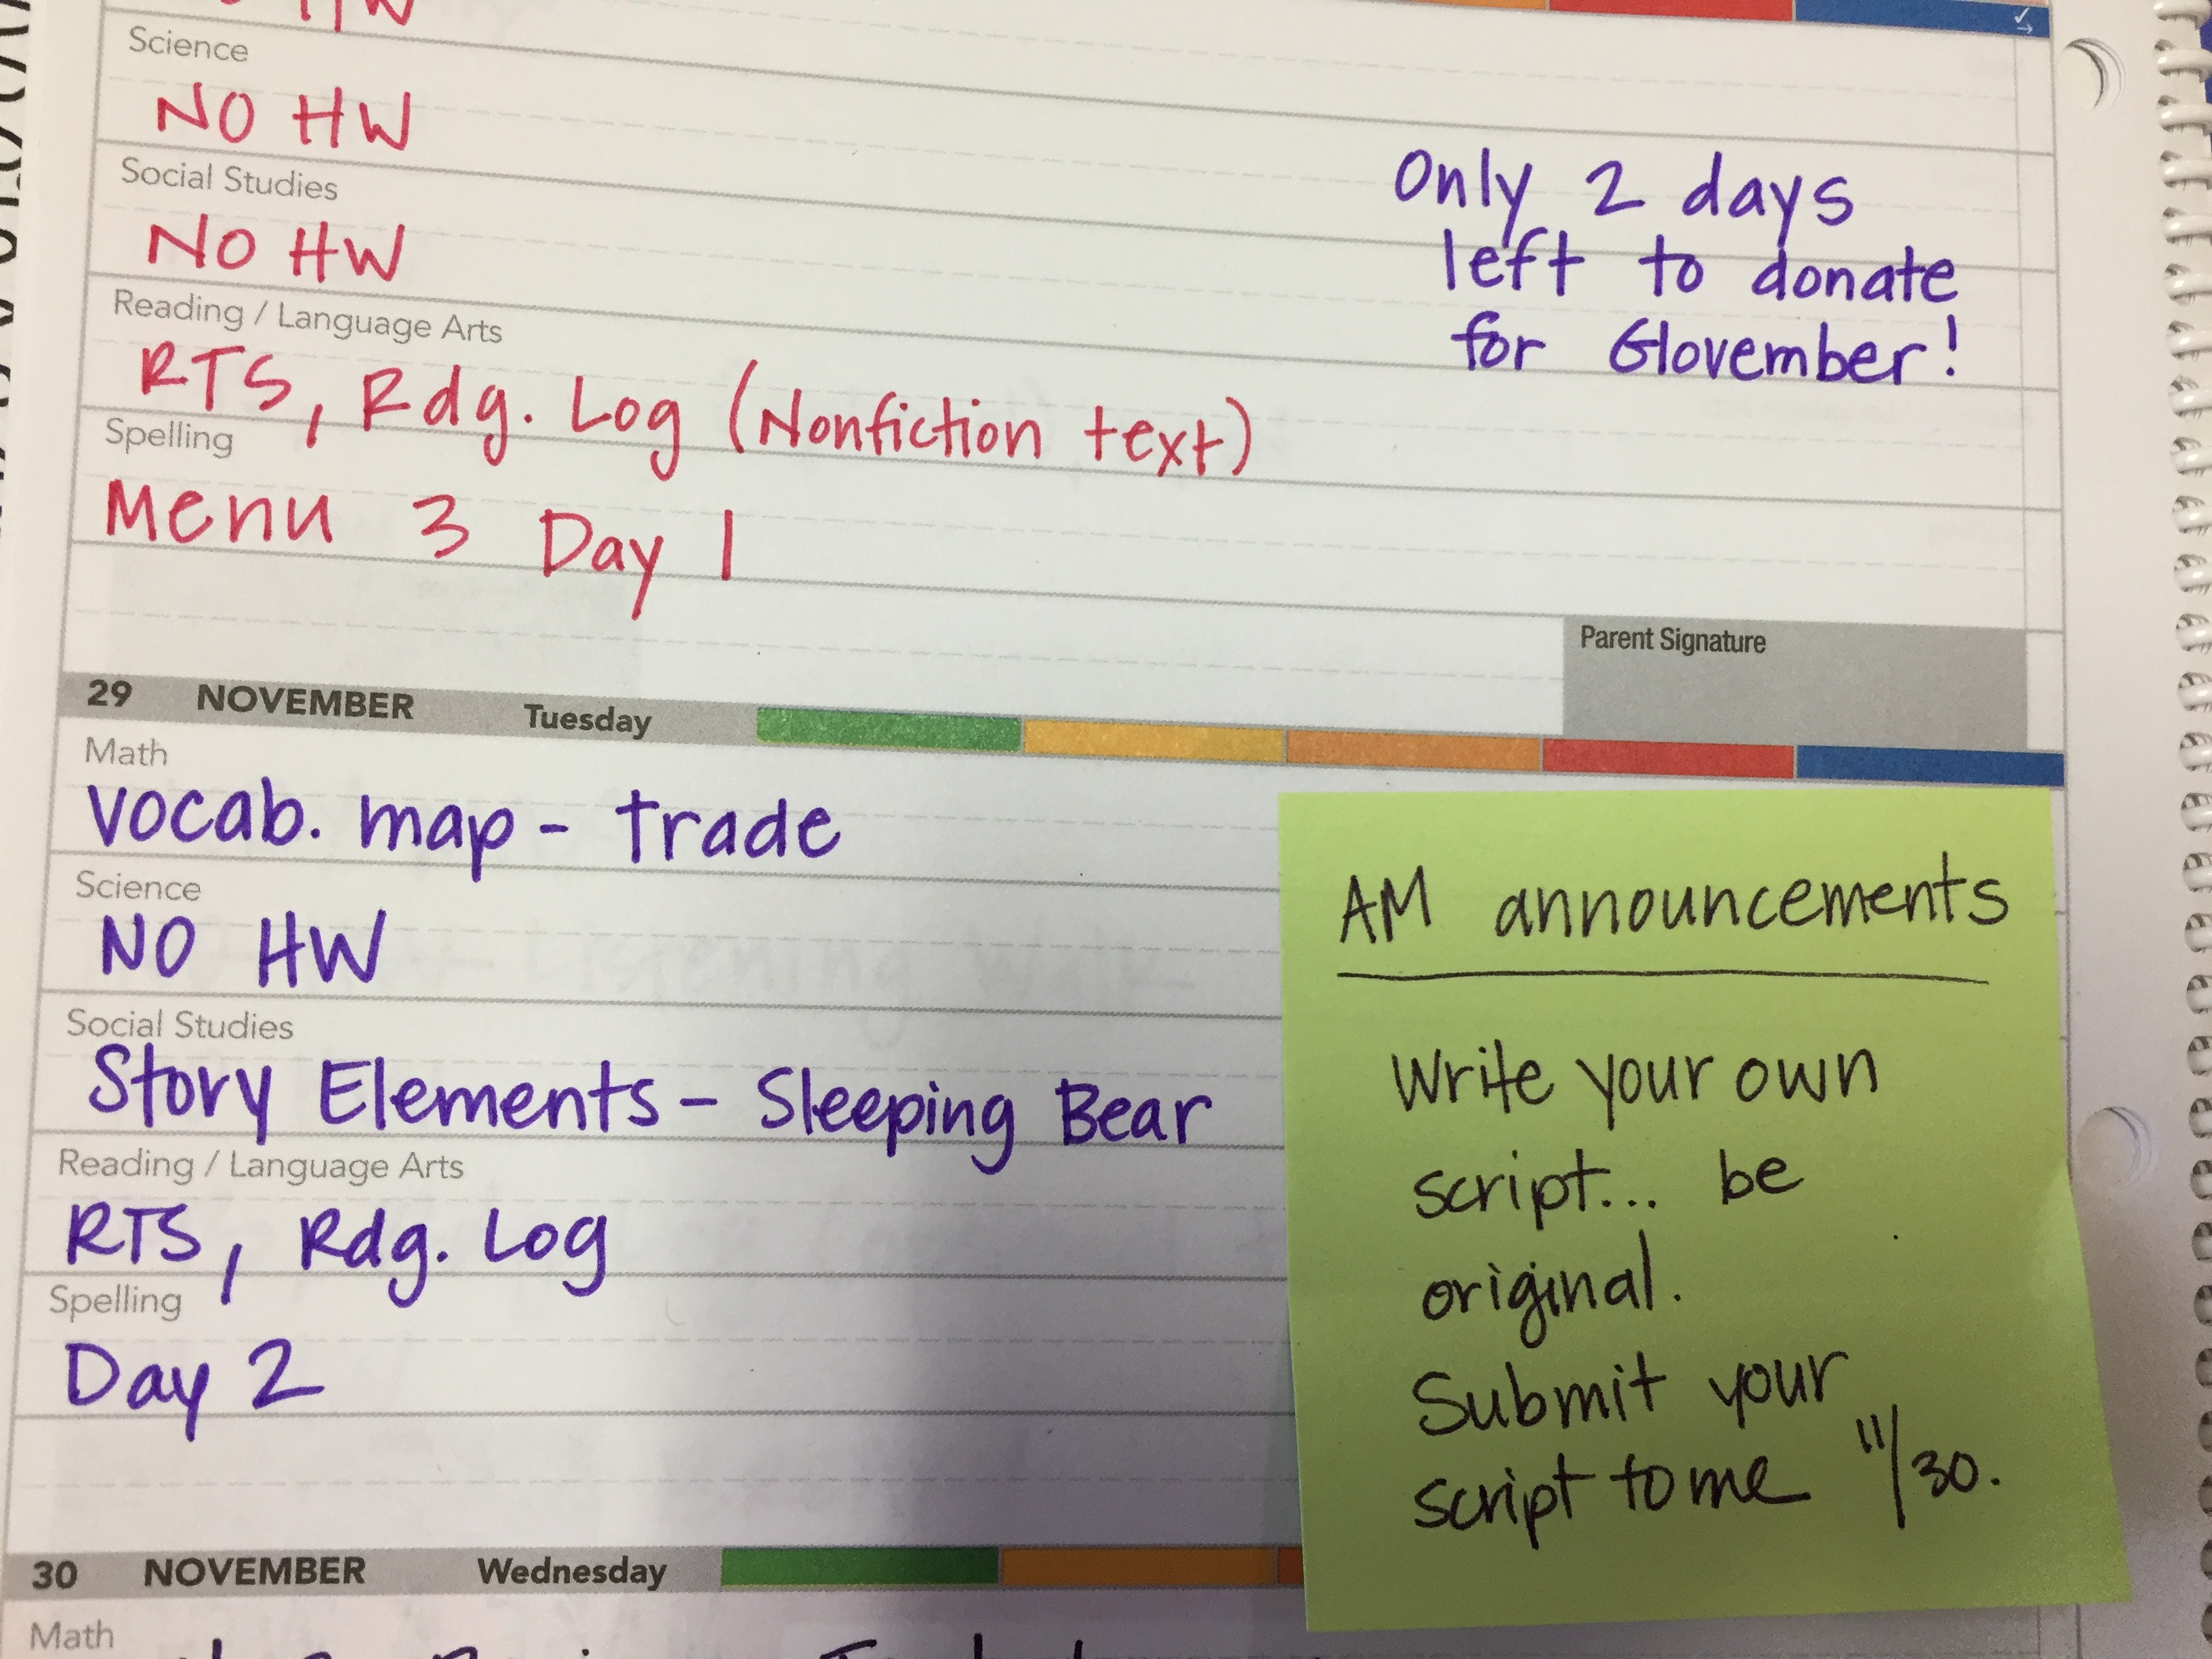 HW
Science
NO HW
Social Studies
NO HW
Only 2 days
left to donate
for Glovember!
Reading / Language Arts
RTS, Rdg. Log (Nonfiction text)
Spelling
Menu 3 Day 1
Parent Signature
29 NOVEMBER Tuesday
Math
Vocab. map - trade
Science
NO HW
Social Studies
Story Elements - Sleeping Bear
Reading / Language Arts
RTS, Rdg. Log
Spelling
Day 2
AM announcements
Write your own
script... be
original.
Submit your
script to me 11/30.
30 NOVEMBER Wednesday
Math